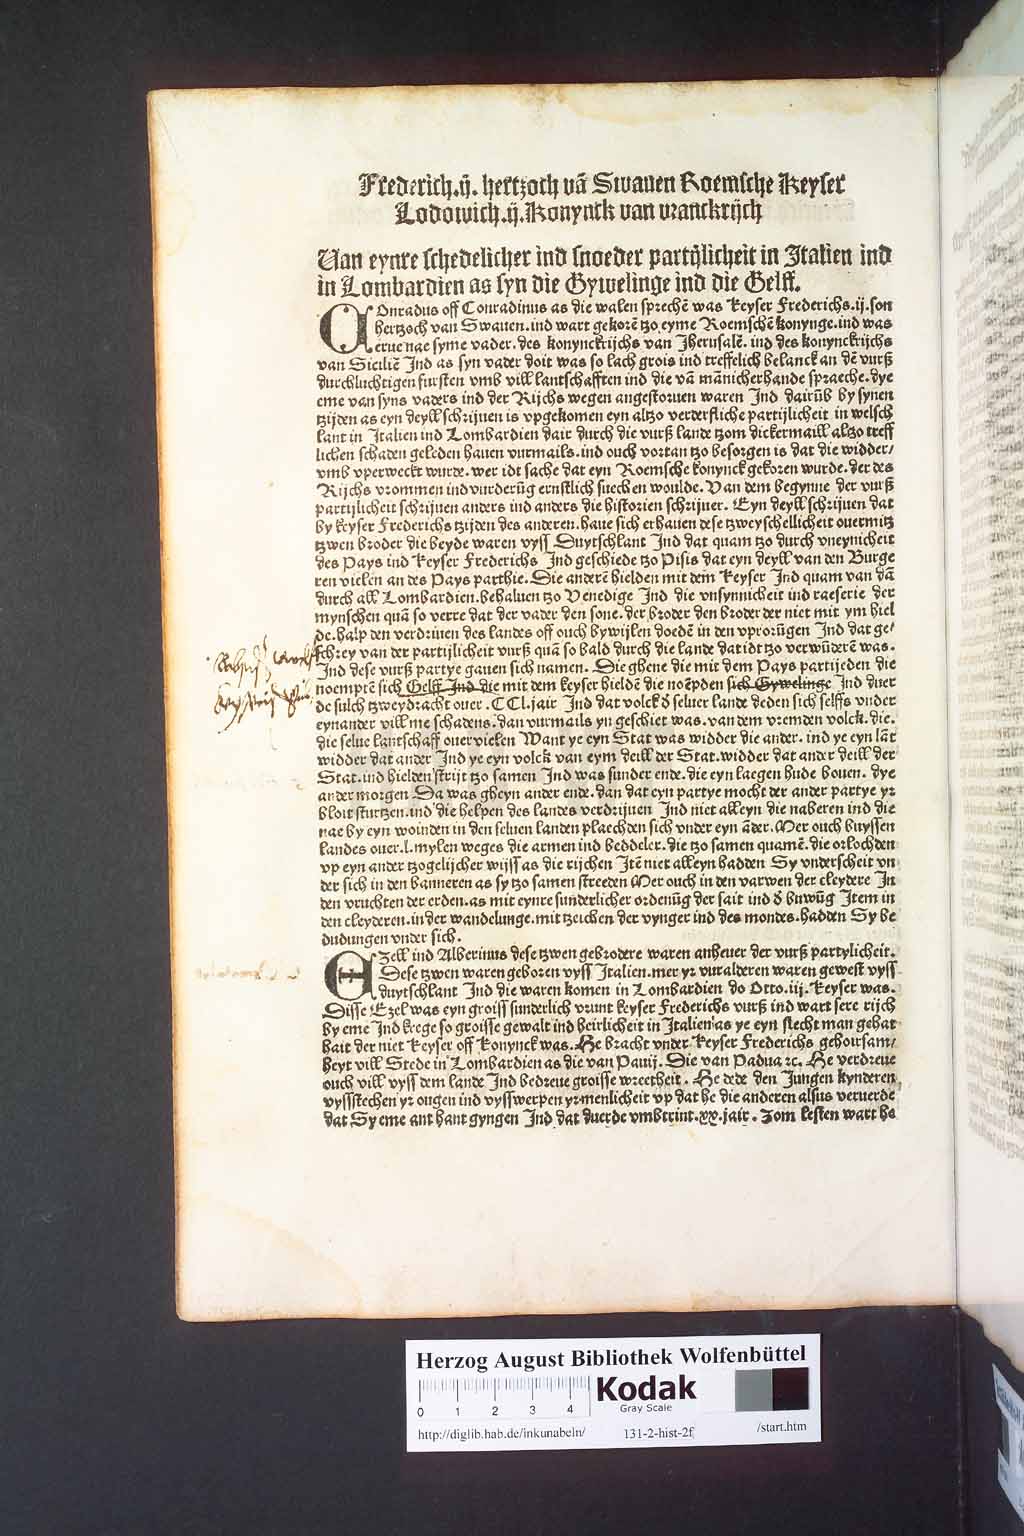 Frederich.ij. hertzoch vā Swauen Roemsche Keyser
Lodowich.ij. Konynck van vranckrijch
Van eynre schedelicher ind snoeder partijlicheit in Italien ind
in Lombardien as syn die Gywelinge ind die Gelff.
COnradus off Conradinus as die walen sprechē was keyser Frederichs.ij.son
hertzoch van Swauen.ind wart gekorē tzo eyme Roemschē konynge.ind was
erue nae syme vader.des konynckrijchs van Jherusalē. ind des konynckrijchs
van Siciliē Ind as syn vader doit was so lach grois ind treffelich belanck an dē vurß
durchluchtigen fursten vmb vill lantschafften ind die vā mānicherhande spraeche.dye
eme van syns vaders ind der Rijchs wegen angestoruen waren Ind dairūb by synen
tzijden as eyn deyll schrijuen is vpgekomen eyn altzo verderfliche partijlicheit in welsch
lant in Italien ind Lombardien dair durch die vurß lande tzom dickermaill altzo treff
lichen schaden geleden hauen vurmails.ind ouch vortan tzo besorgen is dat die widder/
vmb vperweckt wurde.wer idt sache dat eyn Roemsche konynck gekoren wurde.der des
Rijchs vrommen ind vurderūg ernstlich suechen woulde. Van dem begynne der vurß
partijlicheit schrijuen anders ind anders die historien schrijuer. Eyn deyll schrijuen dat
by keyser Frederichs tzijden des anderen.haue sich erhauen dese tzweyschellicheit ouermitz
tzwen broder die beyde waren vyss Duytschlant Ind dat quam tzo durch vneynicheit
des Pays ind keyser Frederichs Ind geschiede tzo Pisis dat eyn deyll van den Burge
ren vielen an des Pays parthie. Die anderē hielden mit dem keyser Ind quam van dā
durch all Lombardien.behaluen tzo Venedige Ind die vnsynnicheit ind raeserie der
mynschen quā so verre dat der vader den sone.der broder den broder der niet mit ym hiel
de.halp den verdriuen des landes off ouch bywijlen doedē in den vprorūgen Ind dat ge/
schrey van der partijlicheit vurß quā so bald durch die lande dat idt tzo verwūderē was.
Ind dese vurß partye gauen sich namen. Die ghene die mit dem Pays partijeden die
noemptē sich Gelff Ind die mit dem keyser hieldē die noēpden sich Gywelinge Ind duer
de sulch tzweydracht ouer .CCl.jair Ind dat volck d seluer lande deden sich selffs vnder
eynander vill me schadens.dan vurmails yn geschiet was.van dem vremden volck.die.
die selue lantschaff ouervielen Want ye eyn Stat was widder die ander.ind ye eyn lāt
widder dat ander Ind ye eyn volck van eym deill der Stat.widder dat ander deill der
Stat.ind hielden strijt tzo samen Ind was sunder ende.die eyn laegen hude bouen. dye
ander morgen Da was gheyn ander ende.dan dat eyn partye mocht der ander partye yr
bloit sturtzen.ind die helpen des landes verdrijuen Ind niet alleyn die naberen ind die
nae by eyn woinden in den seluen landen plaechden sich vnder eyn āder.Mer ouch buyssen
landes ouer.l.mylen weges die armen ind beddeler.die tzo samen quamē.die orlochden
vp eyn ander tzogelijcher wijss as die rijchen Itē niet alleyn hadden Sy vnderscheit vn
der sich in den banneren as sy tzo samen streeden Mer ouch in den varwen der cleydere In
den vruchten der erden.as mit eynre sunderlicher ordenūg der sait ind d buwūg Item in
den cleyderen.in der wandelunge.mit tzeichen der vynger ind des mondes.hadden Sy be
dudungen vnder sich.
EZell ind Alberinus dese tzwen gebrodere waren anheuer der vurß partylicheit.
Dese tzwen waren geboren vyss Italien.mer yr vuralderen waren gewest vyss
duytschlant Ind die waren komen in Lombardien do Otto.iij.keyser was.
Disse Ezel was eyn groiss sunderlich vrunt keyser Frederichs vurß ind wart sere rijch
by eme Ind krege so groisse gewalt ind heirlicheit in Italien as ye eyn slecht man gehat
hait der niet keyser off konynck was.He bracht vnder keyser Frederichs gehoirsam/
heyt vill Stede in Lombardien as die van Pauij. Die van Padua ꝛc. He verdreue
ouch vill vyss dem lande Ind bedreue groisse wreetheit. He dede den Jungen kynderen
vyssstechen yr ougen ind vysswerpen yr menlicheit vp dat he die anderen alsus veruerde
dat Sy eme ant hant gyngen Ind dat duerde vmbtrint.xx.jair. Zom lesten wart he
Herzog August Bibliothek Wolfenbüttel
0 1 2 3 4
Kodak
Gray Scale
http://diglib.hab.de/inkunabeln/ 131-2-hist-2f /start.htm